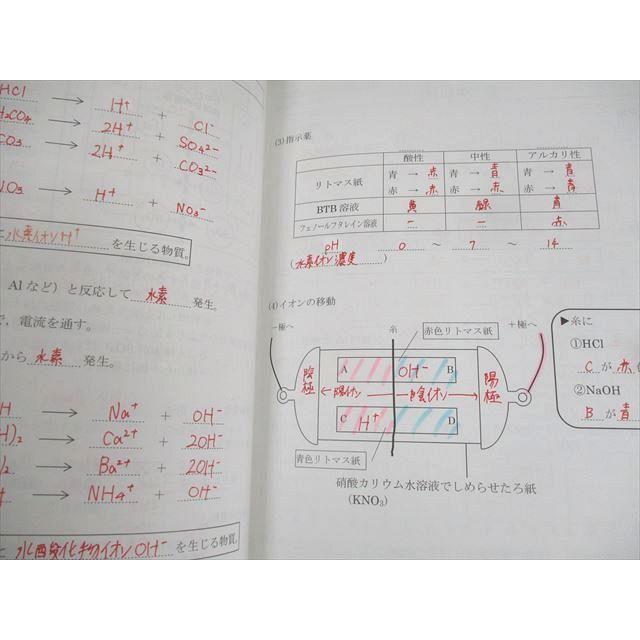 HCl → H⁺ + Cl⁻
H₂CO₄ → 2H⁺ + SO₄²⁻
CO₃ → 2H⁺ + CO₃²⁻
NO₃ → H⁺ + NO₃⁻
水素イオンH⁺ を生じる物質。
Alなど）と反応して 水素 発生。
で，電流を通す。
から 水素 発生。
H → Na⁺ + OH⁻
H)₂ → Ca²⁺ + 2OH⁻
)₂ → Ba²⁺ + 2OH⁻
→ NH₄⁺ + OH⁻
と 水酸化物イオンOH⁻ を生じる物質。
(3)指示薬
酸性 中性 アルカリ性
リトマス紙 青 → 赤 青 → 青 青 → 青
赤 → 赤 赤 → 赤 赤 → 青
BTB溶液 黄 緑 青
フェノールフタレイン溶液 − − 赤
pH 0 ～ 7 ～ 14
(水素イオン濃度)
(4)イオンの移動
−極へ 糸 赤色リトマス紙 +極へ
陰極 A OH⁻ B 陽極
←陽イオン 陰イオン→
C H⁺ D
青色リトマス紙
硝酸カリウム水溶液でしめらせたろ紙
(KNO₃)
▶糸に
①HCl
C が 赤
②NaOH
B が 青